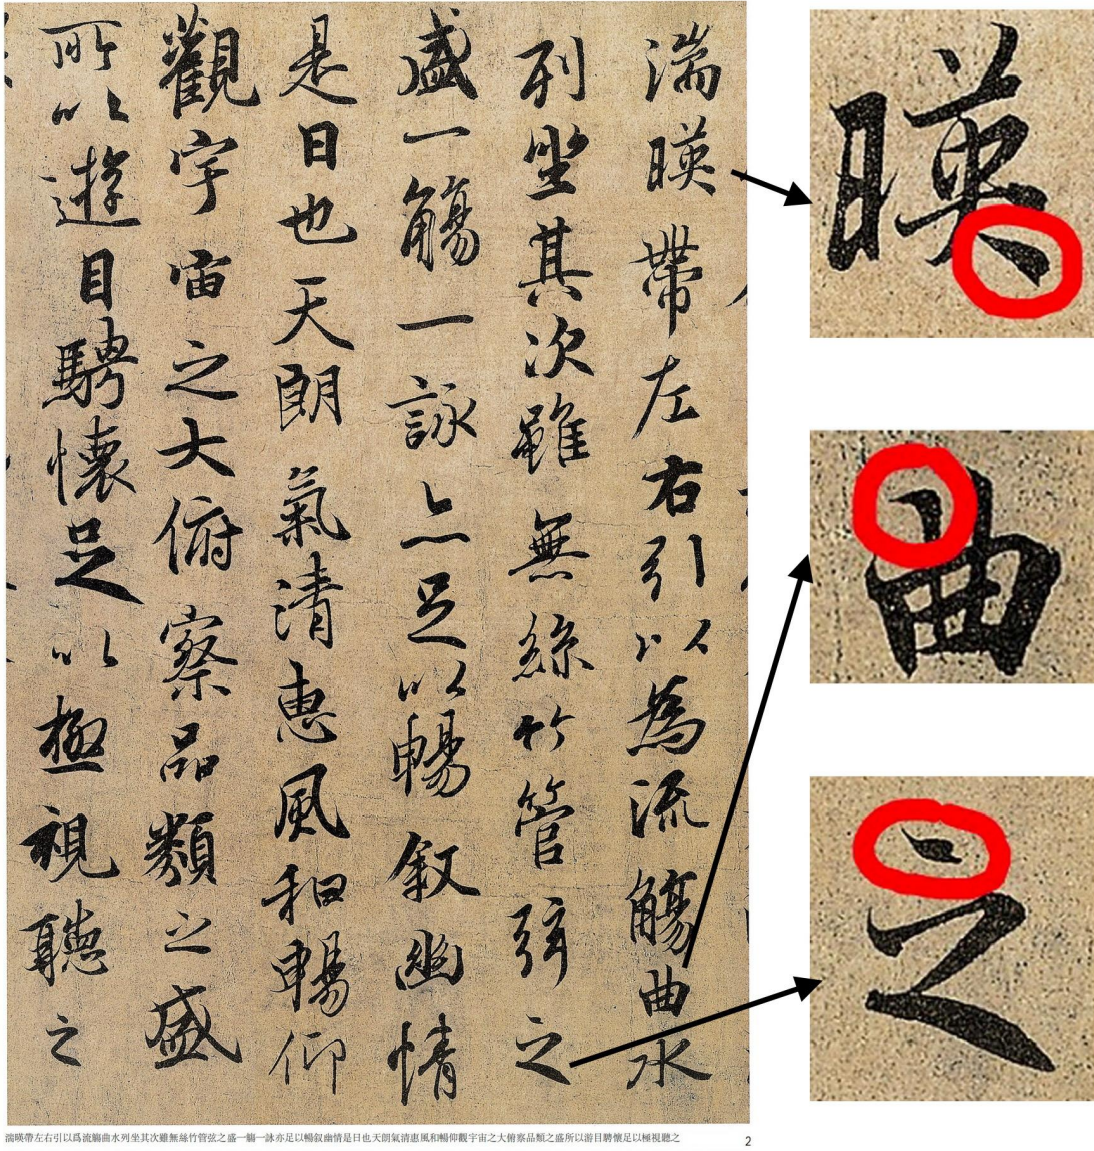 湍暎帶左右引以為流觴曲水
列坐其次雖無絲竹管弦之
盛一觴一詠亦足以暢叙幽情
是日也天朗氣清惠風和暢仰
觀宇宙之大俯察品類之盛
所以遊目騁懷足以極視聽之
暎
曲
之
湍暎帶左右引以爲流觴曲水列坐其次雖無絲竹管弦之盛一觴一詠亦足以暢叙幽情是日也天朗氣清惠風和暢仰觀宇宙之大俯察品類之盛所以游目騁懷足以極視聽之
2